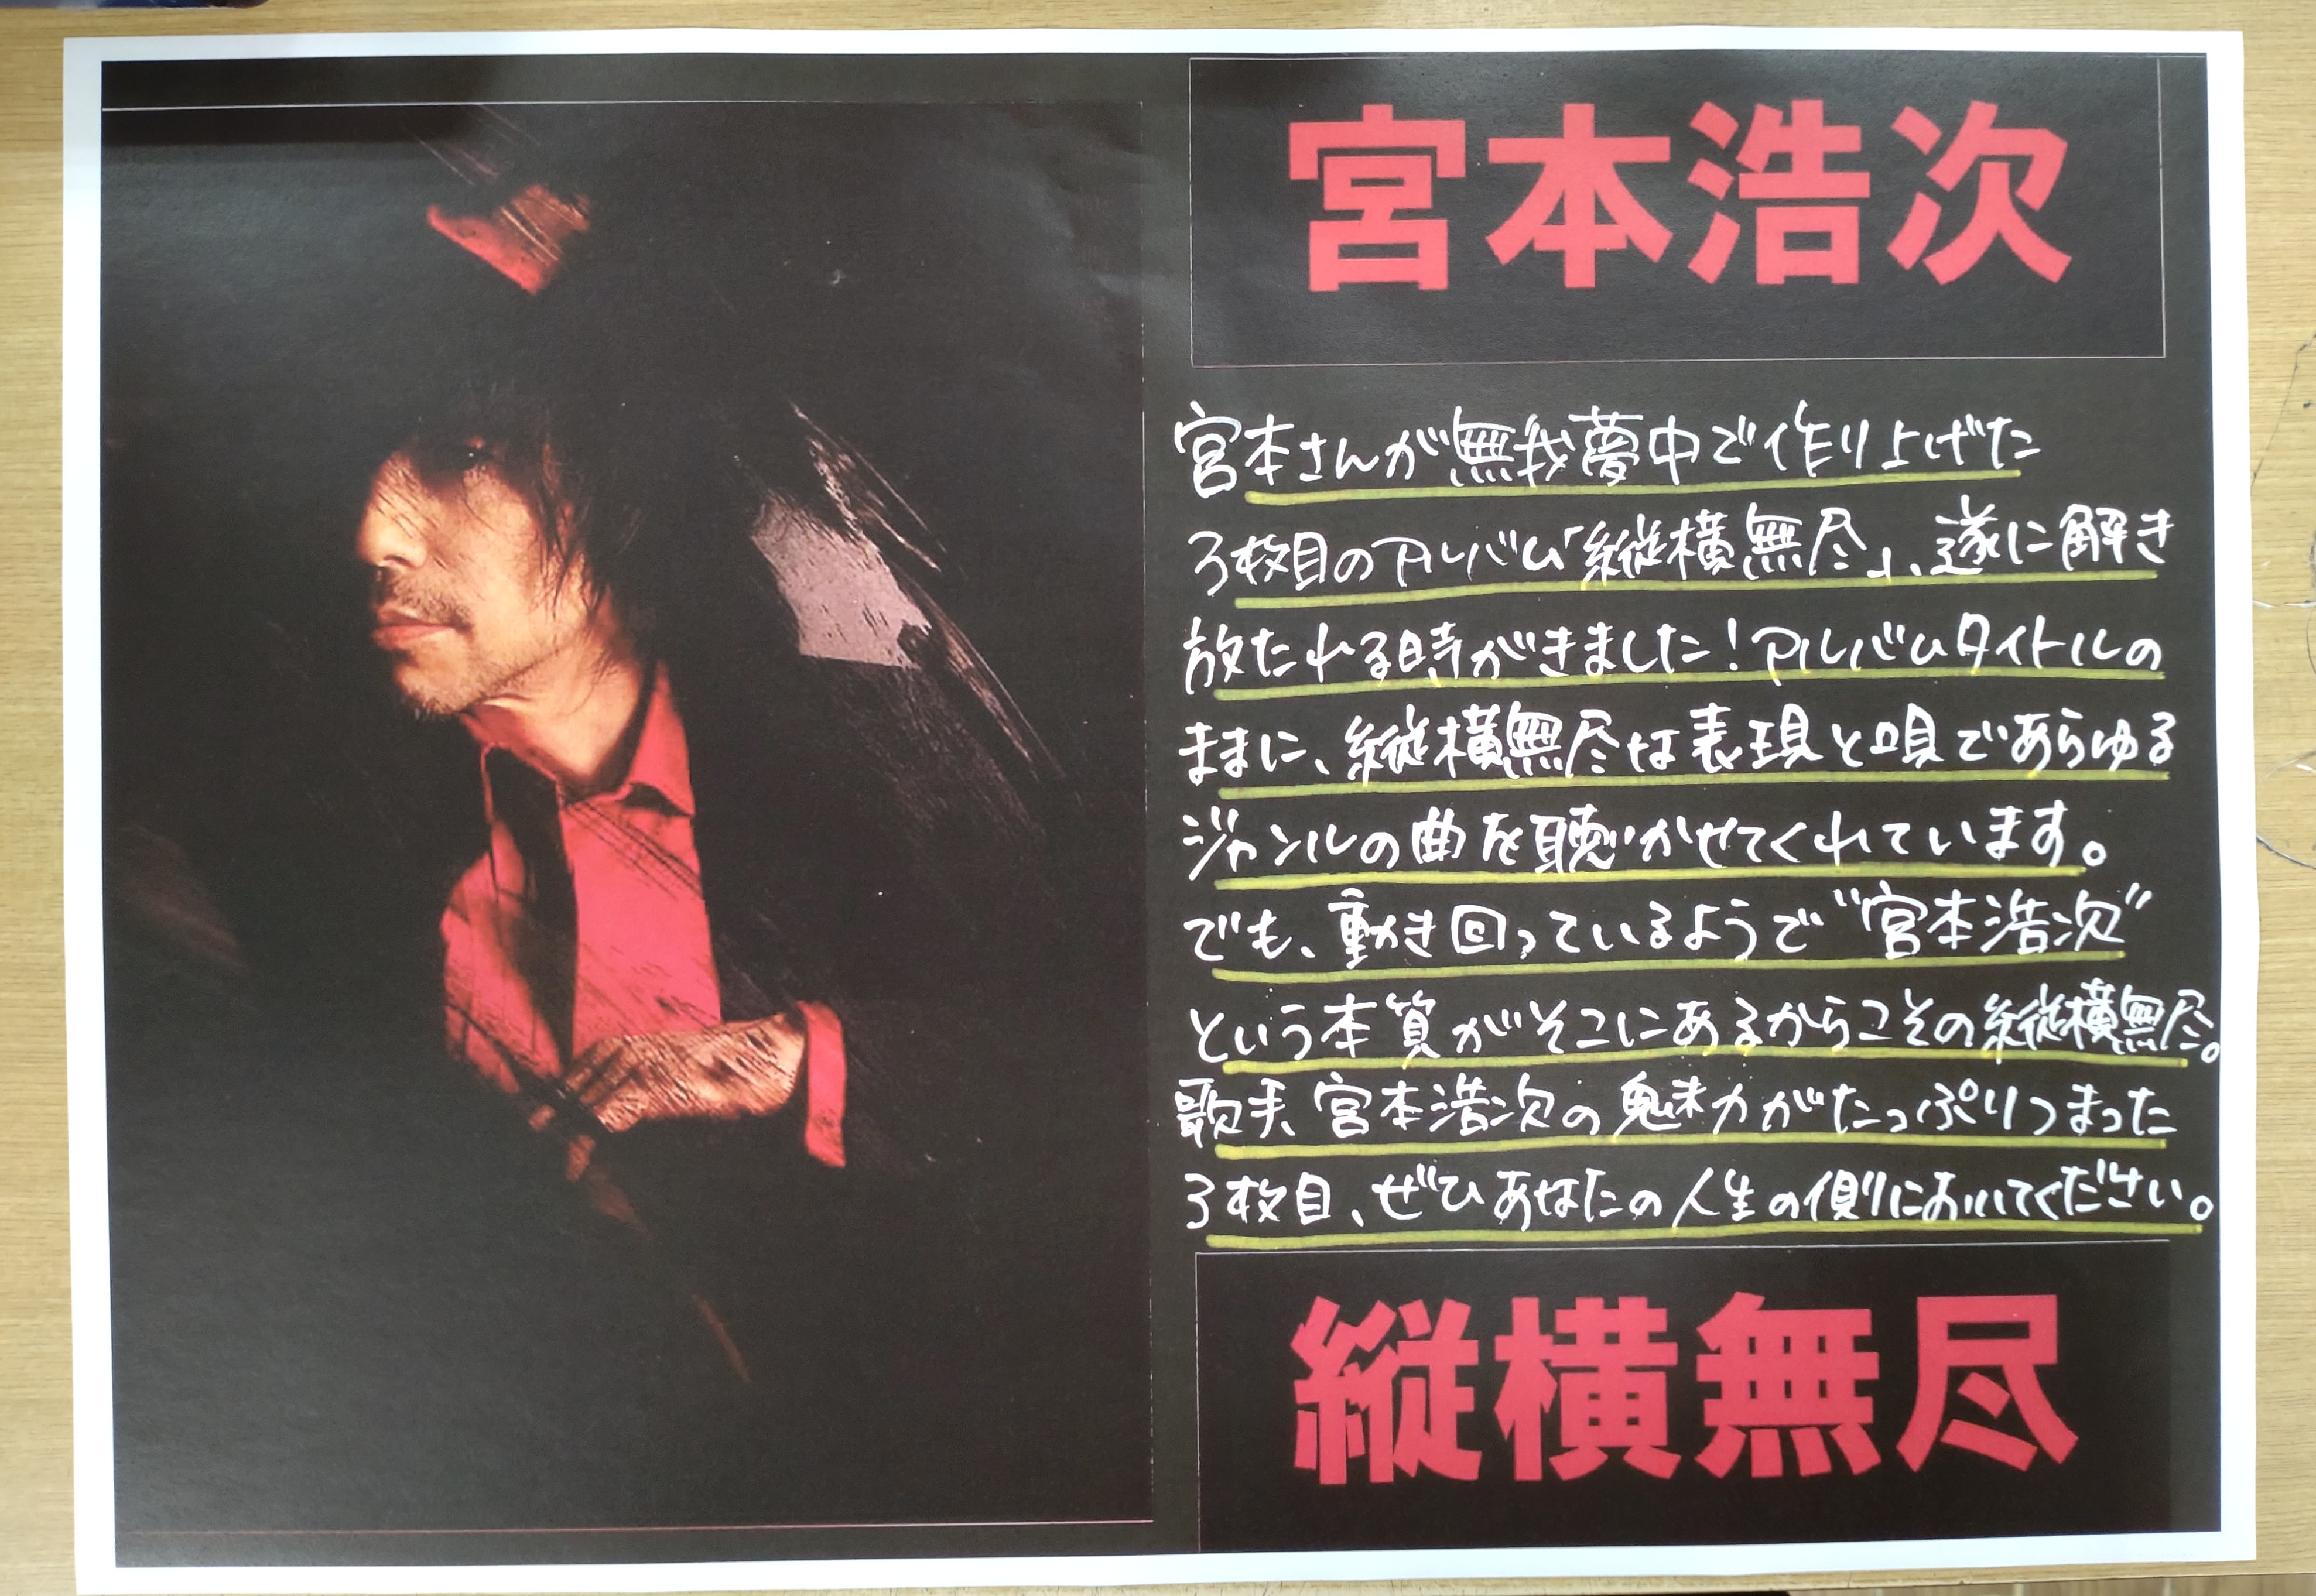 宮本浩次
宮本さんが無我夢中で作り上げた
3枚目のアルバム「縦横無尽」、遂に解き
放たれる時がきました！アルバムタイトルの
ままに、縦横無尽な表現と唄であらゆる
ジャンルの曲を聴かせてくれています。
でも、動き回っているようで“宮本浩次”
という本質がそこにあるからこその縦横無尽。
歌手 宮本浩次の魅力がたっぷりつまった
3枚目、ぜひあなたの人生の側においてください。
縦横無尽